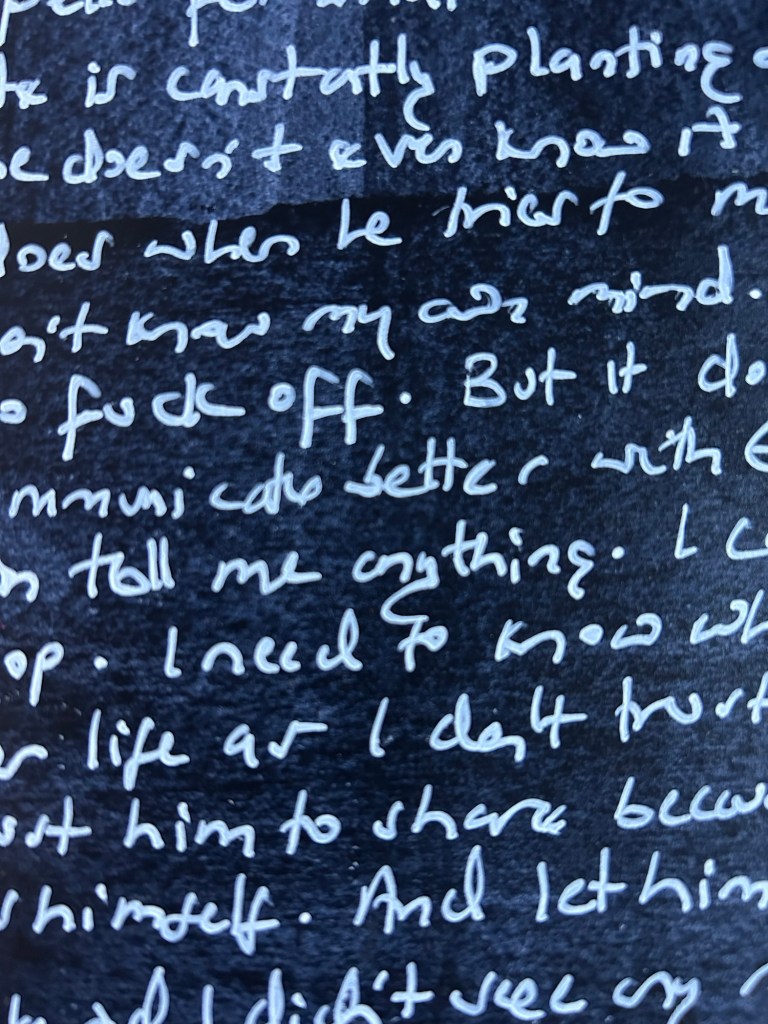 is constatly planting
doesn't even know it
does when he tries to
know my own mind.
fuck off. But it
better with
tell me anything. I
op. I need to know
life as I don't trust
him to share
himself. And let him
I didn't see any